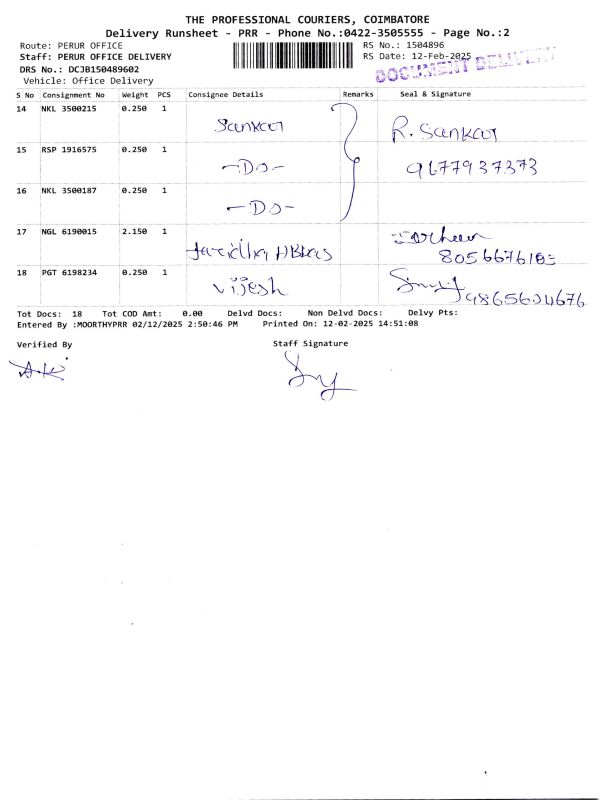 THE PROFESSIONAL COURIERS, COIMBATORE
Delivery Runsheet - PRR - Phone No.:0422-3505555 - Page No.:2
Route: PERUR OFFICE
RS No.: 1504896
Staff: PERUR OFFICE DELIVERY
RS Date: 12-Feb-2025
DOCUMENT DELIVERY
DRS No.: DCJB150489602
Vehicle: Office Delivery
S No Consignment No Weight PCS Consignee Details Remarks Seal & Signature
14 NKL 3500215 0.250 1 Sankar R. Sankar
15 RSP 1916575 0.250 1 -Do- 9677937373
16 NKL 3500187 0.250 1 -Do-
17 NGL 6190015 2.150 1
18 PGT 6198234 0.250 1 Vijesh
Tot Docs: 18 Tot COD Amt: 0.00 Delvd Docs: Non Delvd Docs: Delvy Pts:
Entered By :MOORTHYPRR 02/12/2025 2:50:46 PM Printed On: 12-02-2025 14:51:08
Verified By Staff Signature